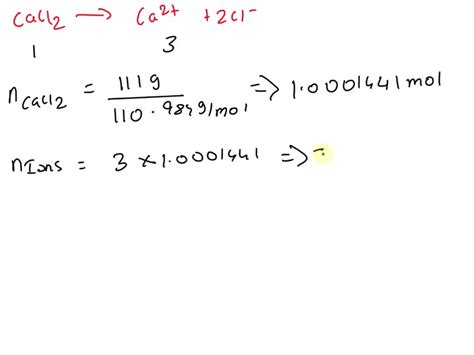 CaCl2 → Ca2+ + 2Cl-
1 3
nCaCl2 = 111g / 110.984g/mol => 1.0001441 mol
nIons = 3 × 1.0001441 =>